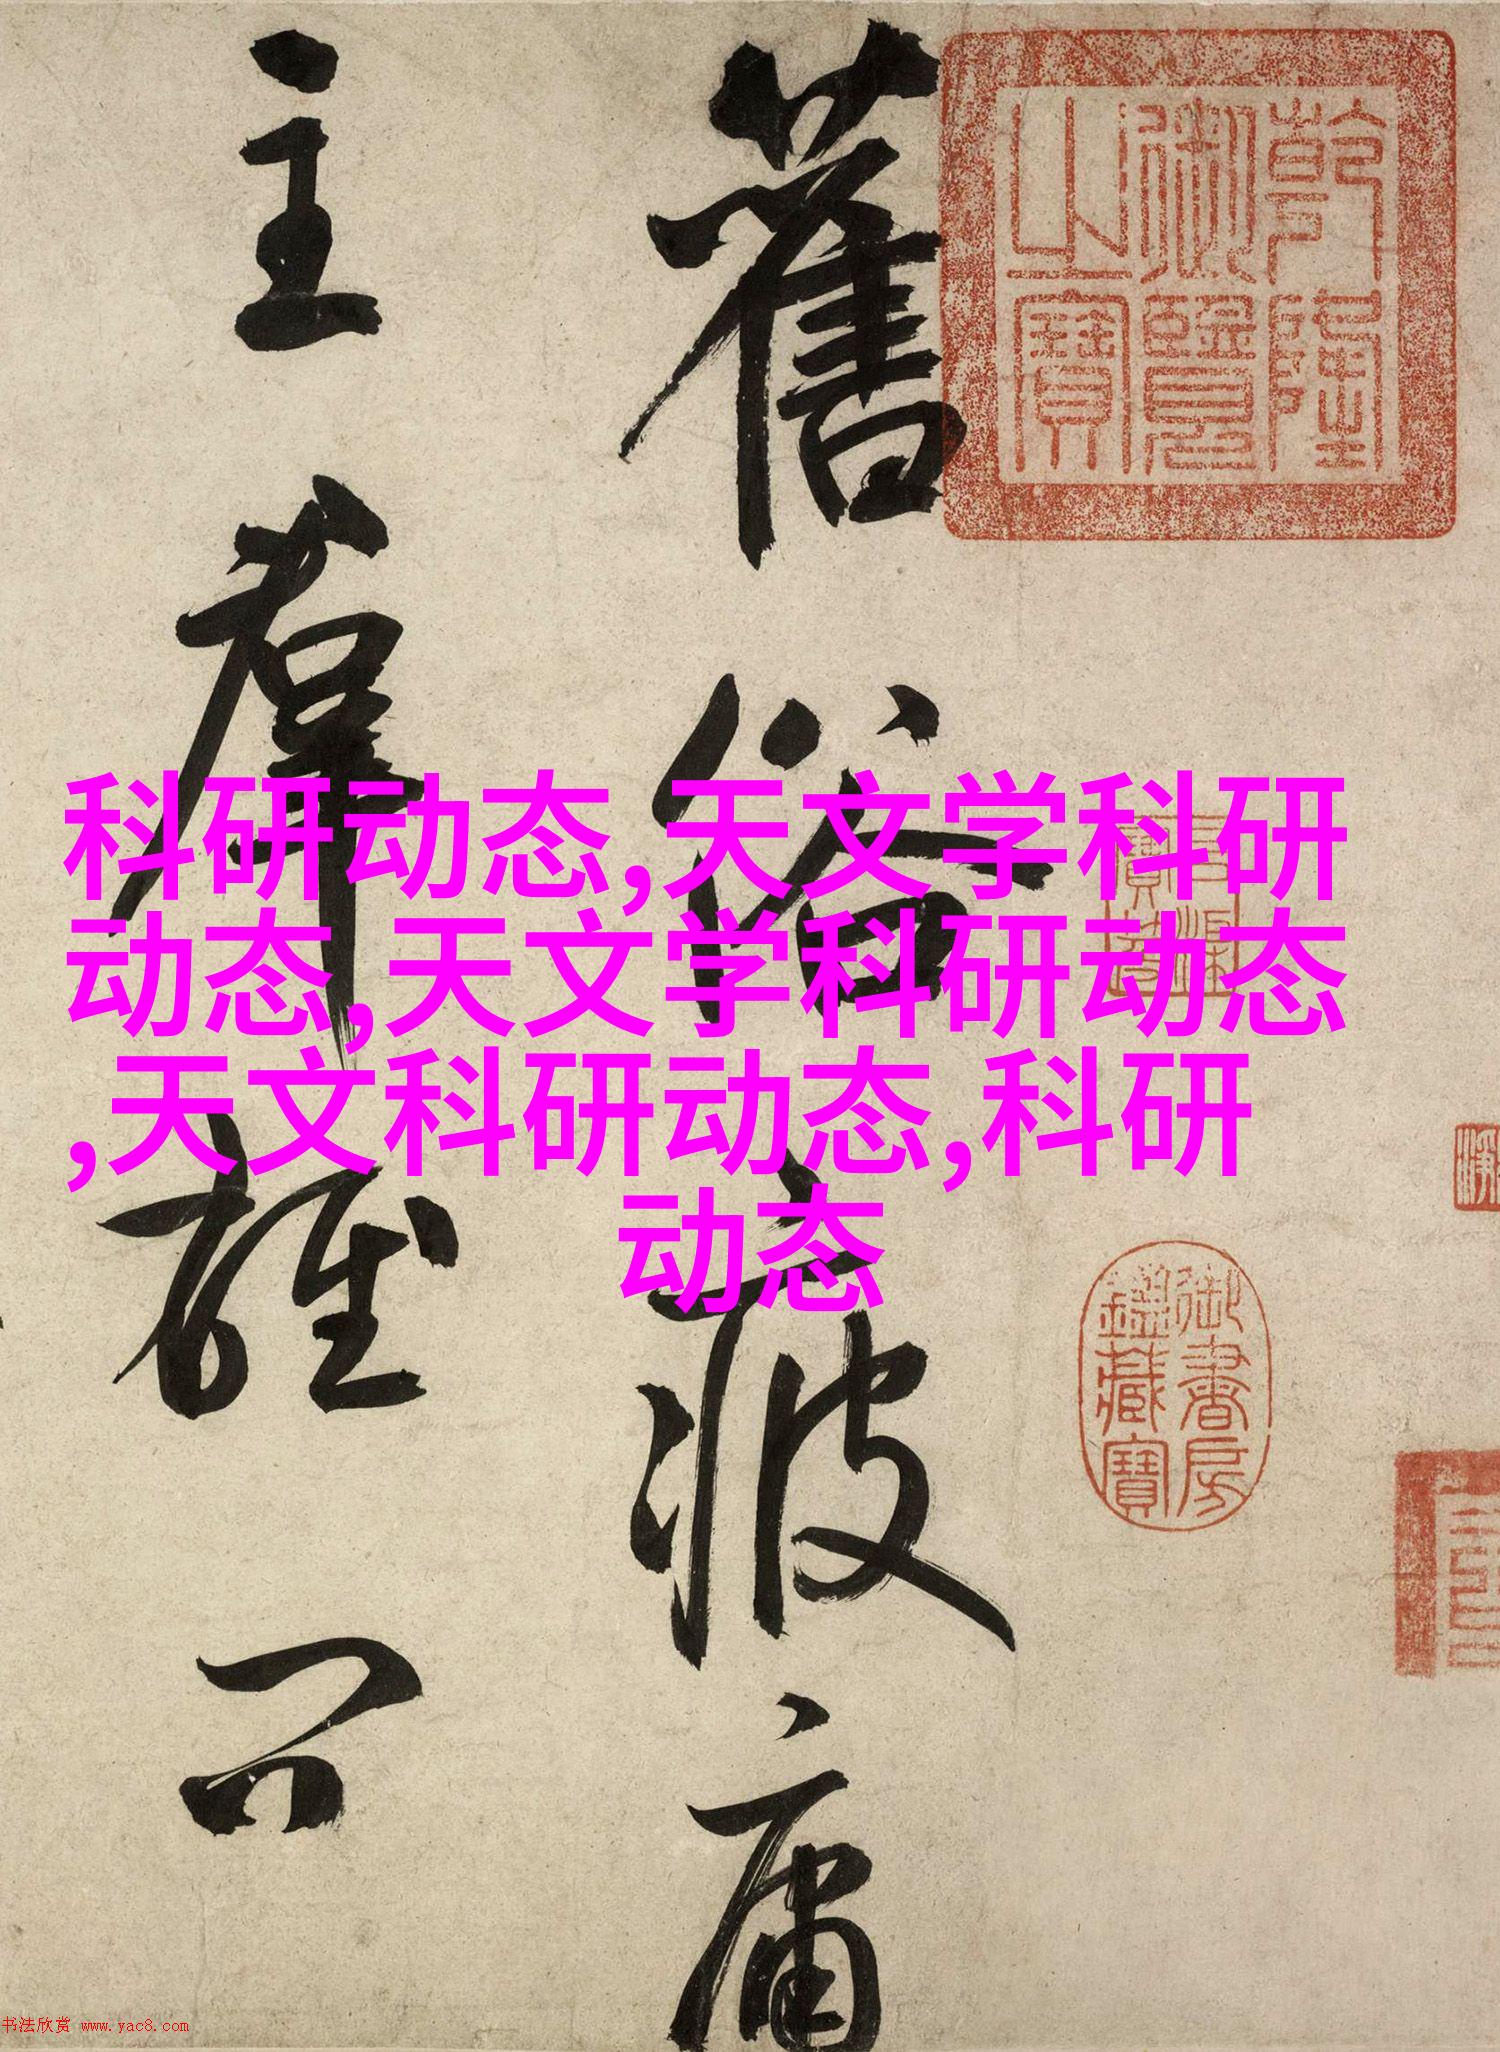 乾隆
御覽
之寶
舊俗疲庸
主羣雄問
科研动态,天文学科研
动态,天文学科研动态
,天文科研动态,科研
动态
石渠
寶笈
御書房
鑑藏寶
书法欣赏 www.yac8.com